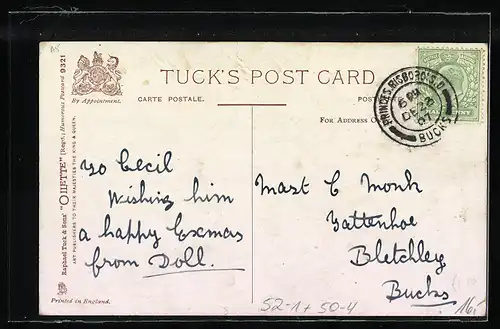 TUCK'S POST CARD
By Appointment.
CARTE POSTALE.
POST
FOR ADDRESS O
Raphael Tuck & Sons' "OILETTE" [Regd.] Humorous Postcard 9321
ART PUBLISHERS TO THEIR MAJESTIES THE KING & QUEEN.
Printed in England.
PRINCES RISBOROUGH
BUCKS
To Cecil
Wishing him
a happy Exmas
from Doll.
Mast C Monk
Tattenhoe
Bletchley
Bucks
52-1+50-4
16,-